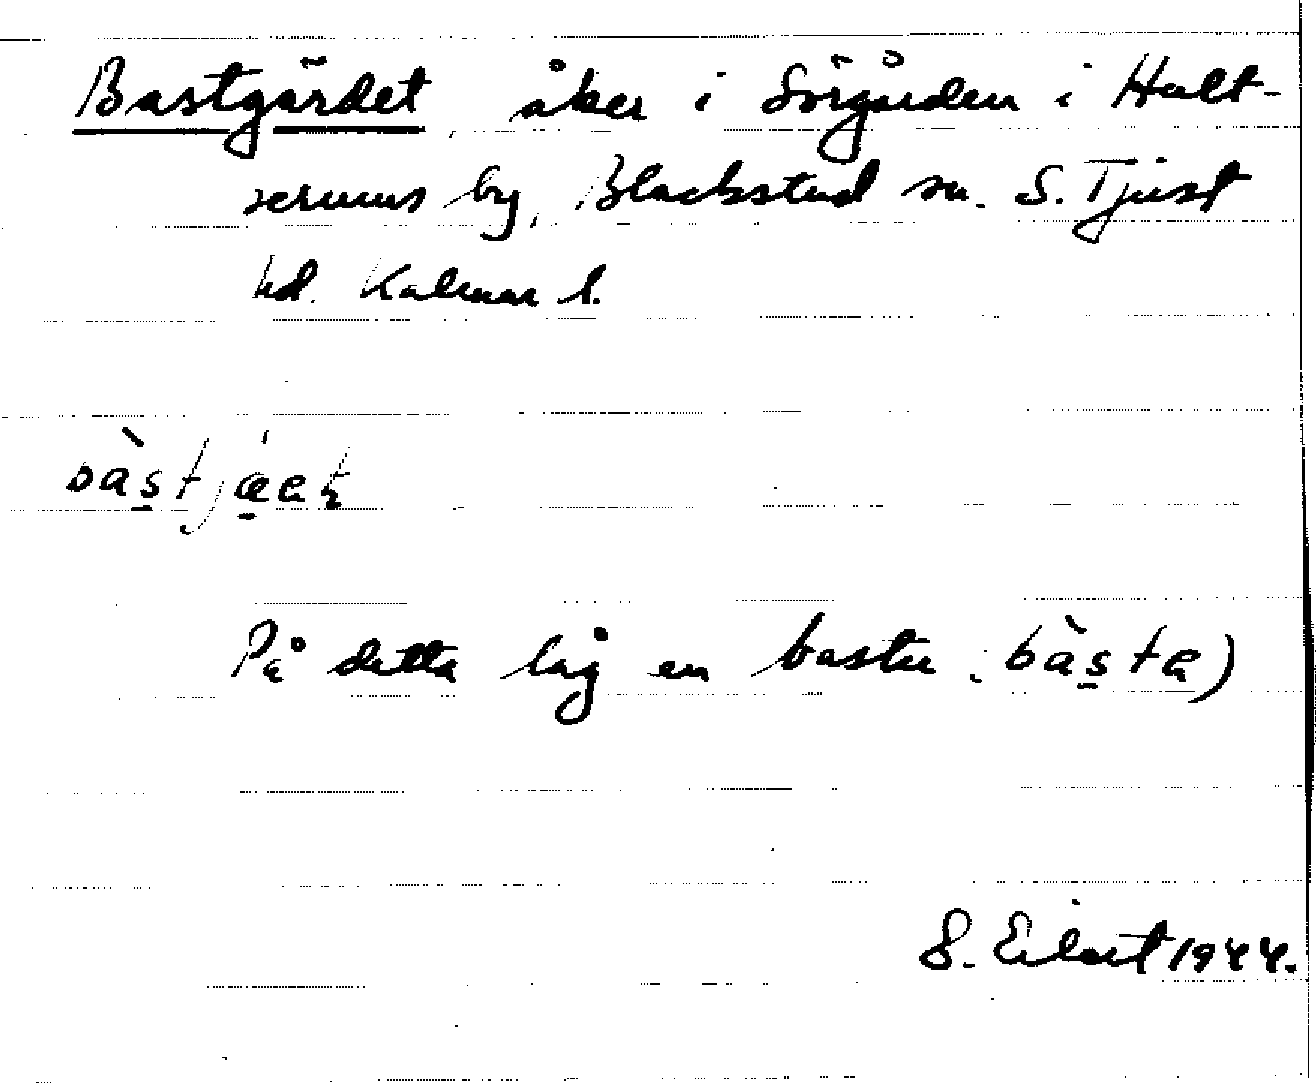 Bastgärdet åker i Sörgården i Hult-
serums by, Blackstad sn. S. Tjust
hd. Kalmar l.
bàstjæ̣ḁt
På detta låg en bastu (bàsta)
S. Eilert 1944.